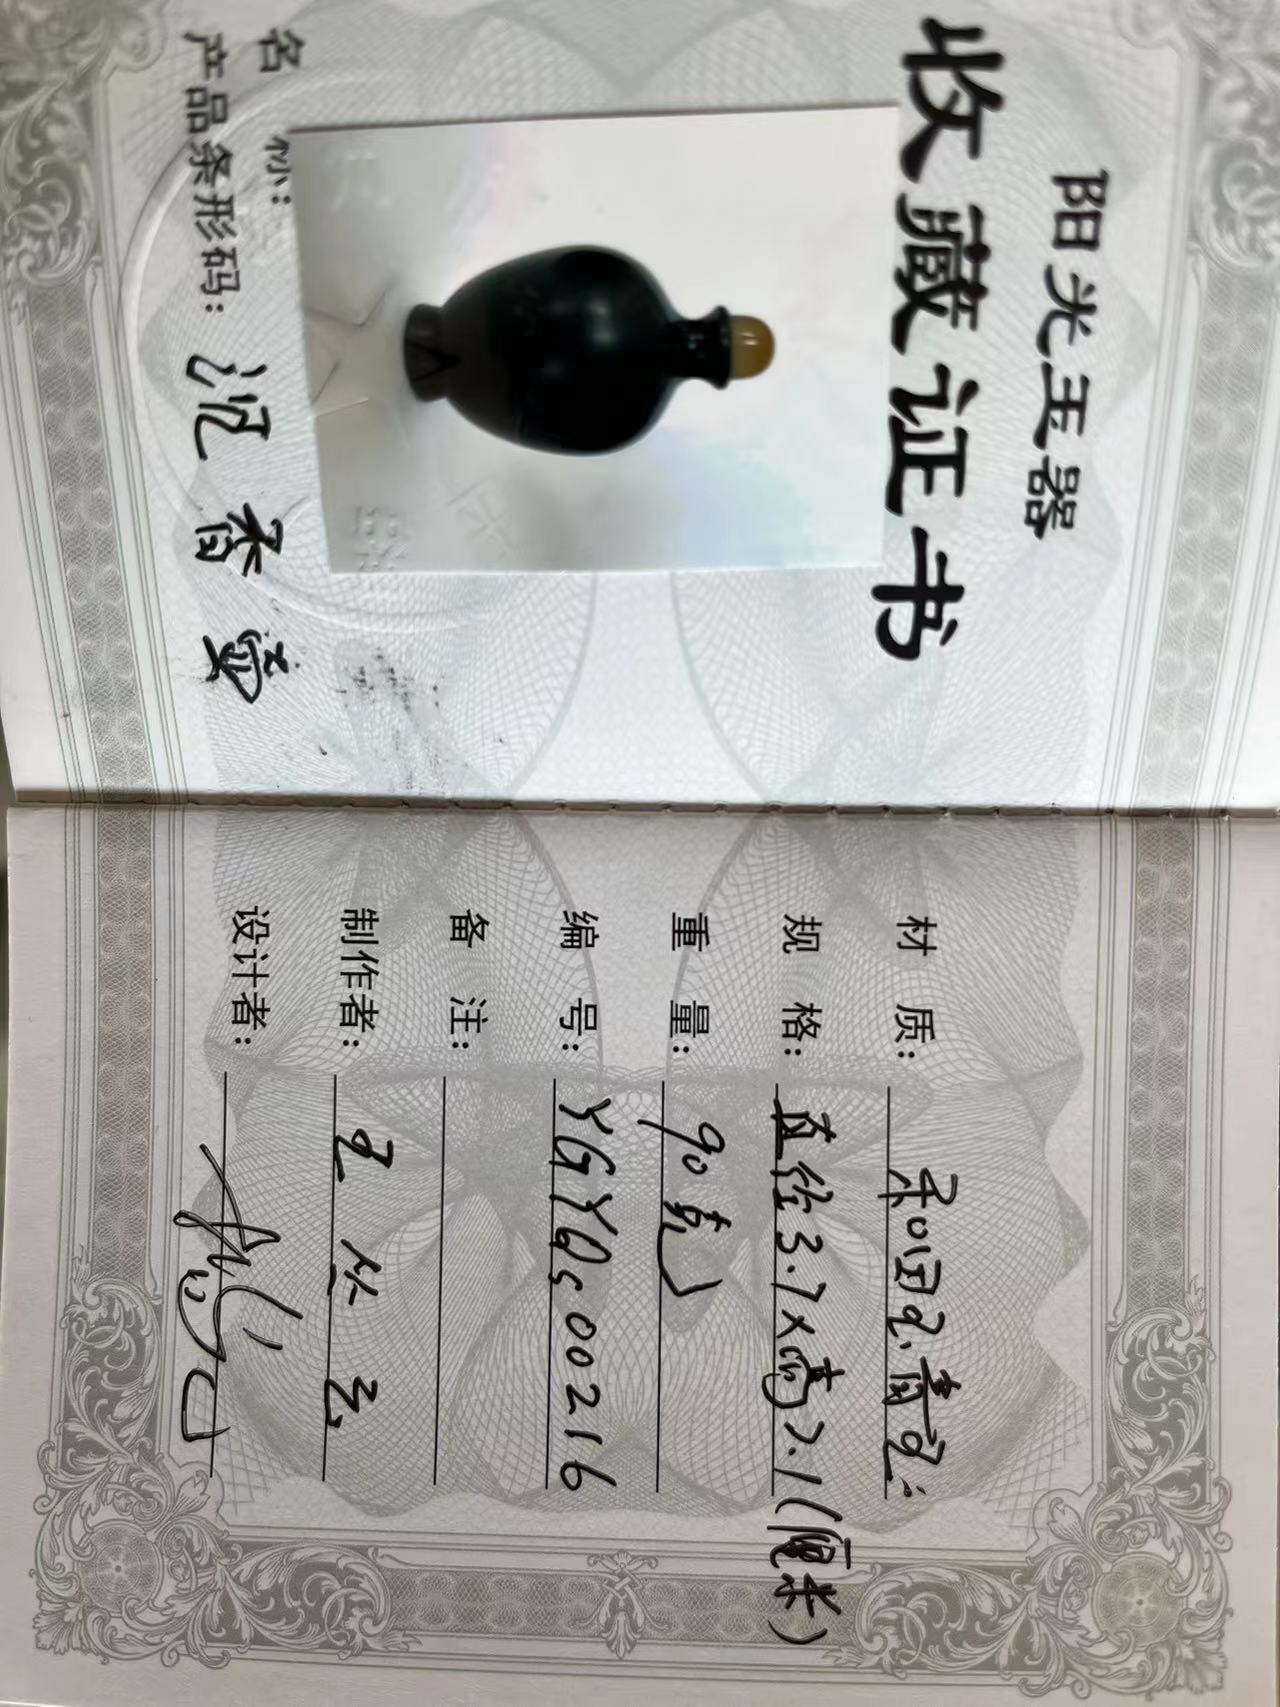 阳光玉器
收藏证书
名 称:
产品条形码:
材 质: 和田玉.青玉
规 格: 直径3.7×高7.1(厘米)
重 量: 90克
编 号: YGYQs00216
备 注:
制作者: 王
设计者: